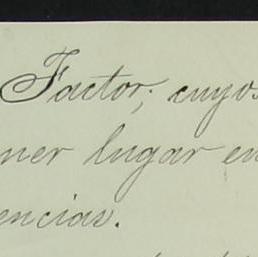 Factor; cuyos
ner lugar en
encias.